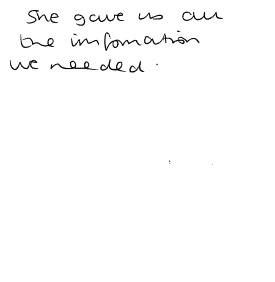 She gave us all
the infomation
we needed.